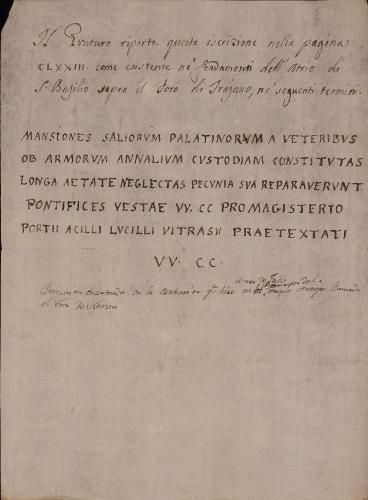 Il Grutero riporta questa iscrizione nella pagina
CLXXIII. come esistente ne' fondamenti dell'Atrio di
S. Basilio sopra il Foro di Trajano, ne' seguenti termini.
MANSIONES SALIORVM PALATINORVM A VETERIBVS
OB ARMORVM ANNALIVM CVSTODIAM CONSTITVTAS
LONGA AETATE NEGLECTAS PECVNIA SVA REPARAVERVNT
PONTIFICES VESTAE VV. CC PROMAGISTERIO
PORTII ACILLI LVCILLI VITRASII PRAETEXTATI
VV. CC.
en la
el Foro de Nerva